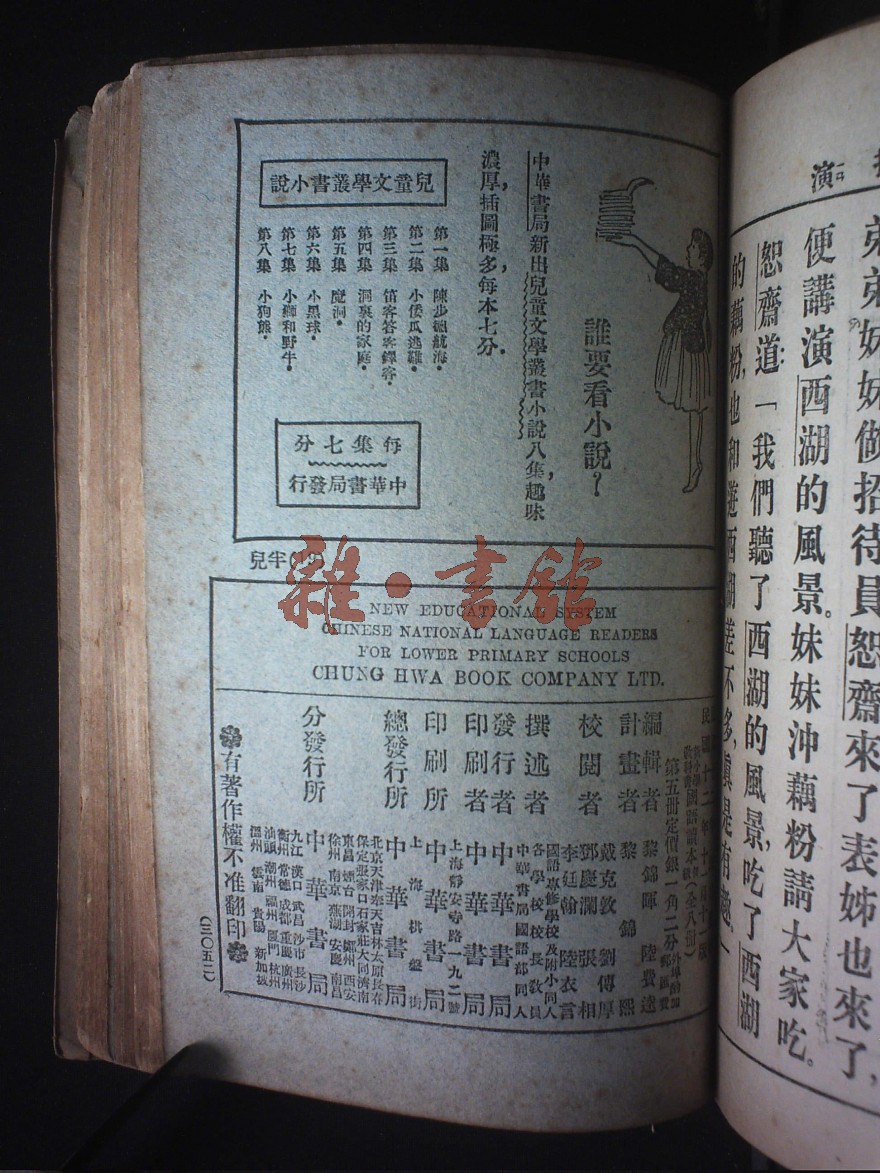 誰要看小說？
中華書局新出兒童文學叢書小說八集，趣味
濃厚，插圖極多，每本七分．
兒童文學叢書小說
第一集 陳步纏航海．
第二集 小倭瓜逃難．
第三集 笛客答客鐸客．
第四集 洞裏的家庭．
第五集 魔洞．
第六集 小黑球．
第七集 小獅和野牛．
第八集 小狗熊．
每集七分
中華書局發行
兒半(19)
雜·書館
NEW EDUCATIONAL SYSTEM
CHINESE NATIONAL LANGUAGE READERS
FOR LOWER PRIMARY SCHOOLS
CHUNG HWA BOOK COMPANY LTD.
民國十二年十
國語讀本 (全八冊)
第五冊定價銀一角二分
編輯者 黎錦暉 陸費逵
計畫者 黎錦熙
校閱者 戴克敦 劉傳厚
鄧慶瀾 張相
李廷翰 陸衣言
撰述者 國語專修學校及附小同人
各學校校長教員
中華書局國語部同人
發行者 中華書局
印刷者 中華書局
印刷所 上海靜安寺路一九二號
中華書局
總發行所 上海棋盤街
中華書局
分發行所 北京 天津 奉天 吉林 太原 長春
保定 張家口 石家莊 大同 濟南
東昌 煙台 開封 鄭州 西安
徐州 南京 蕪湖 安慶 南昌
中華書局
九江 漢口 武昌 沙市 長沙
衡州 常德 成都 重慶 廣州
汕頭 潮州 福州 厦門 杭州
溫州 雲南 貴陽 新加坡
有著作權不准翻印
(三〇五二)
演
弟弟妹妹做招待員恕齋來了表姊也來了，
便講演西湖的風景。妹妹沖藕粉請大家吃。
恕齋道「我們聽了西湖的風景，吃了西湖
的藕粉，也和遊西湖差不多，眞是有趣」